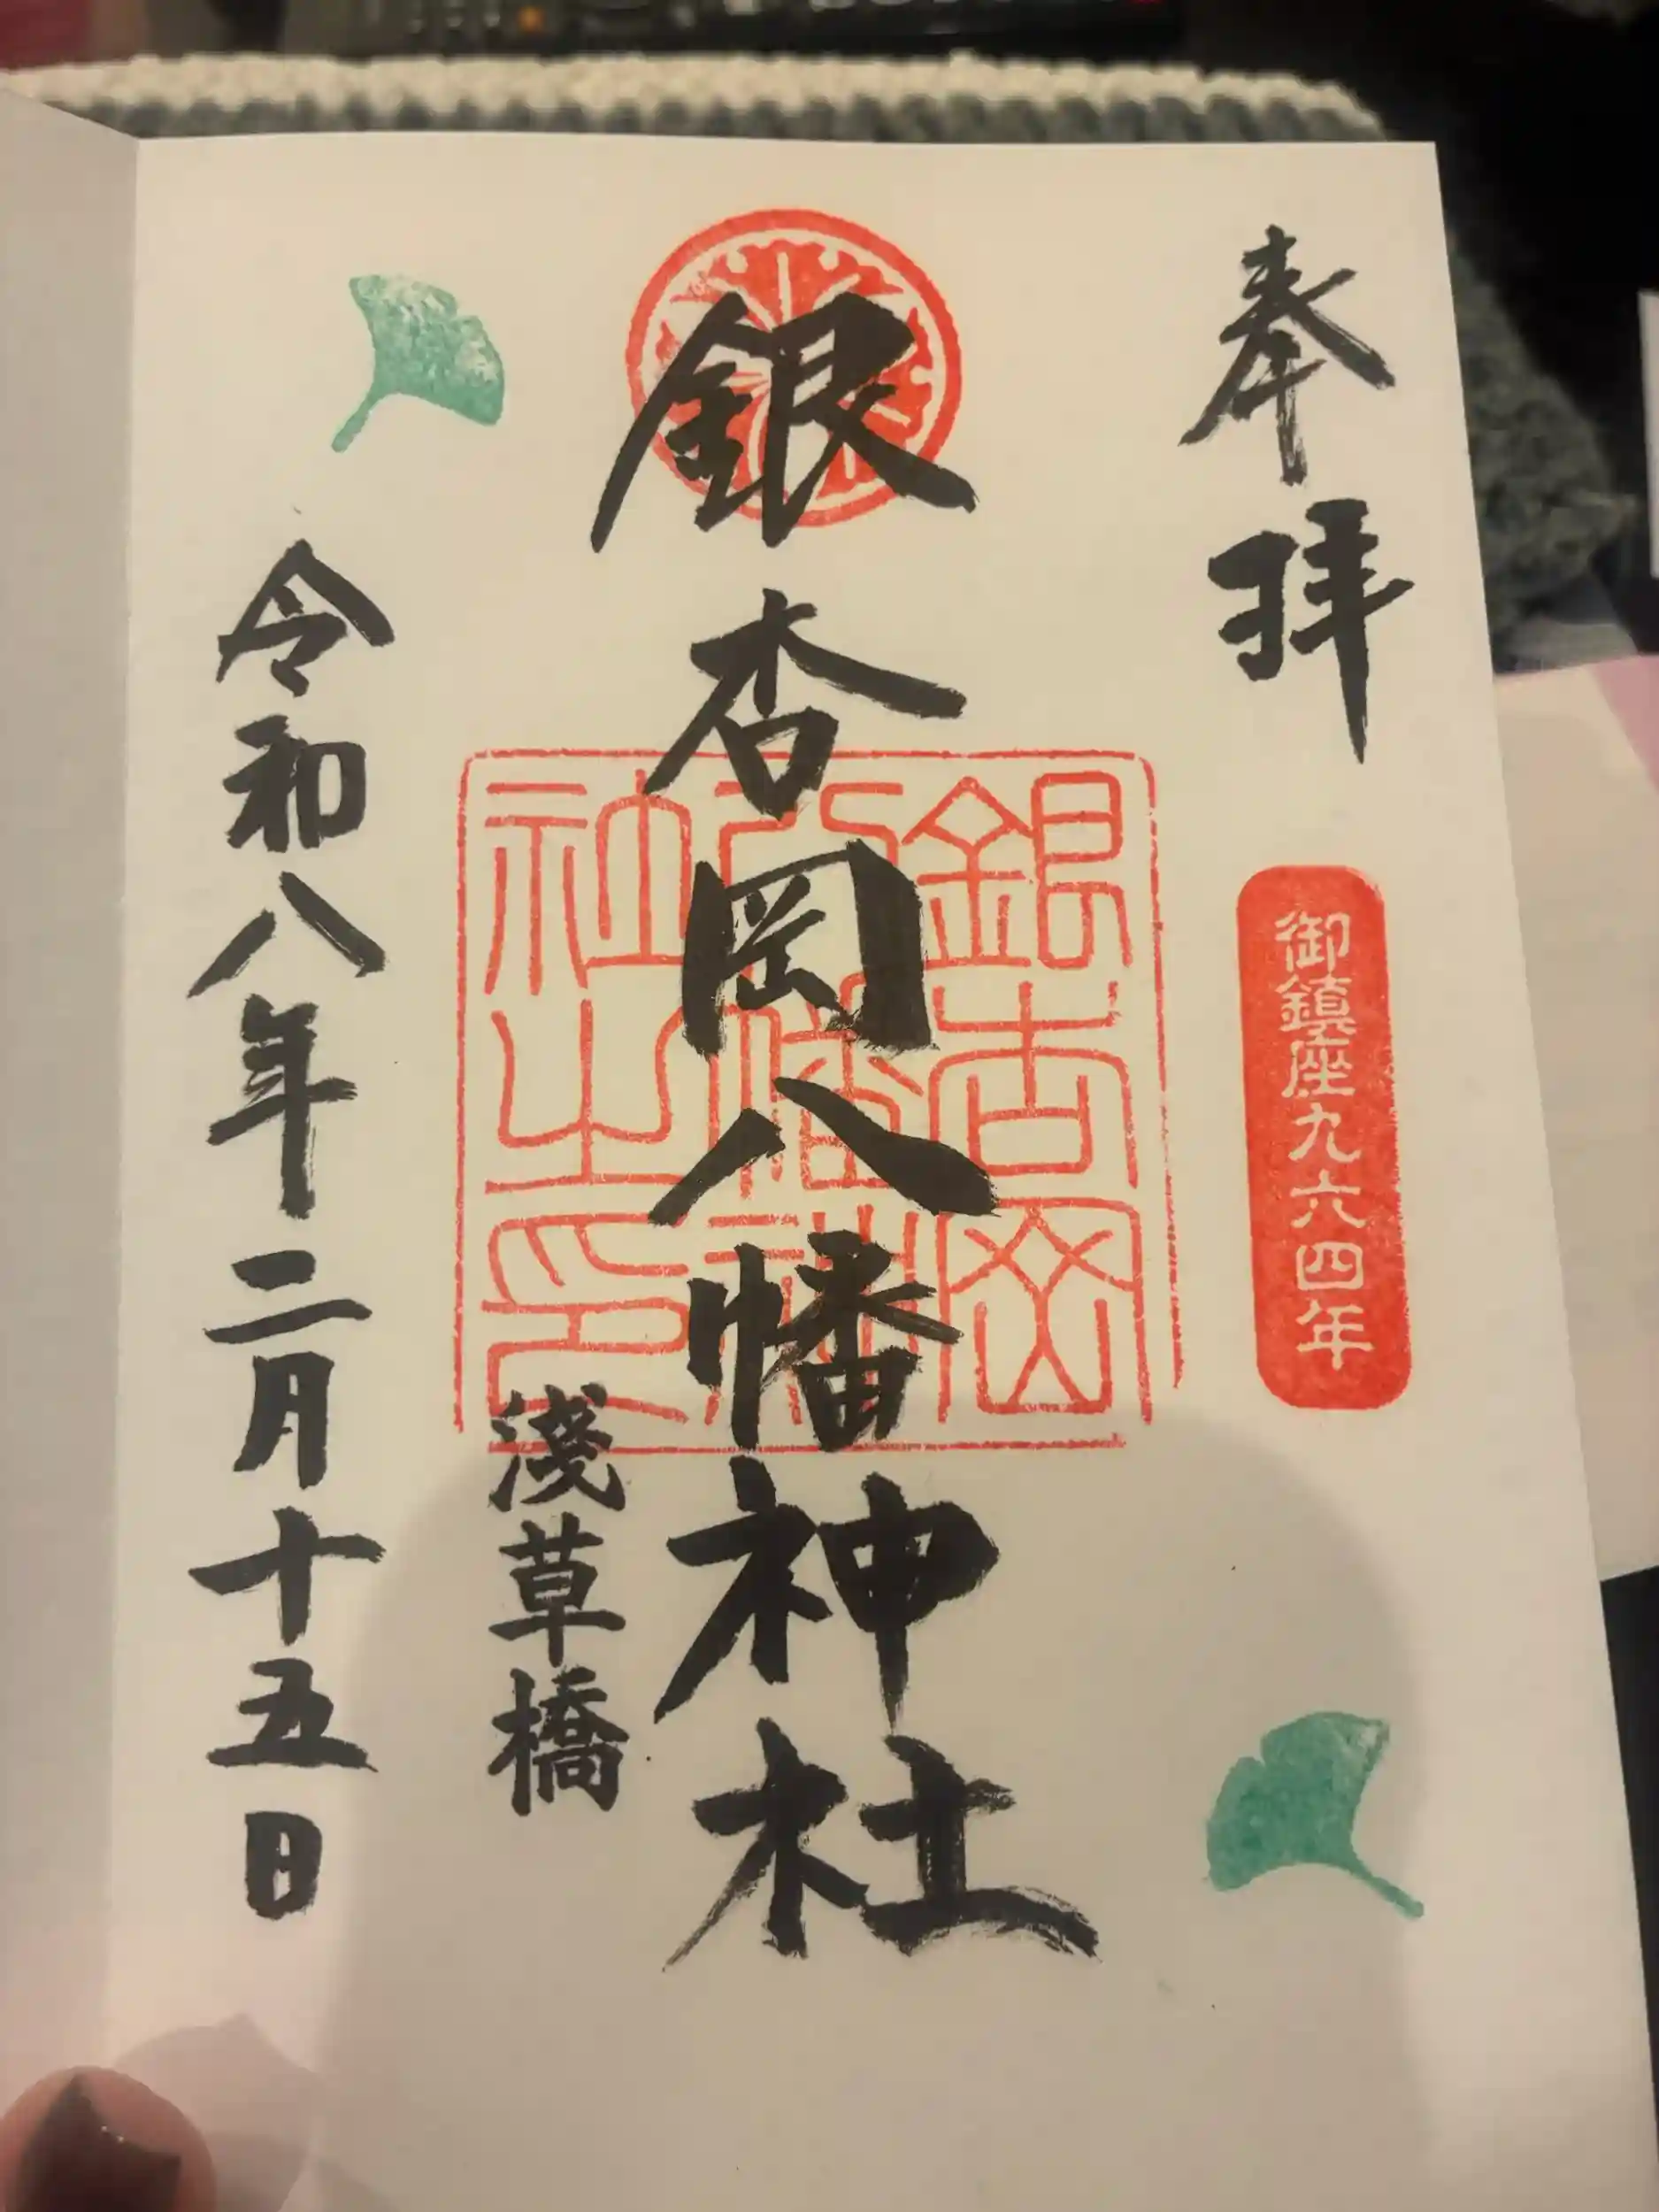 奉拝
御鎮座九六四年
銀杏岡八幡神社
銀杏岡八幡神社之印
淺草橋
令和八年二月十五日